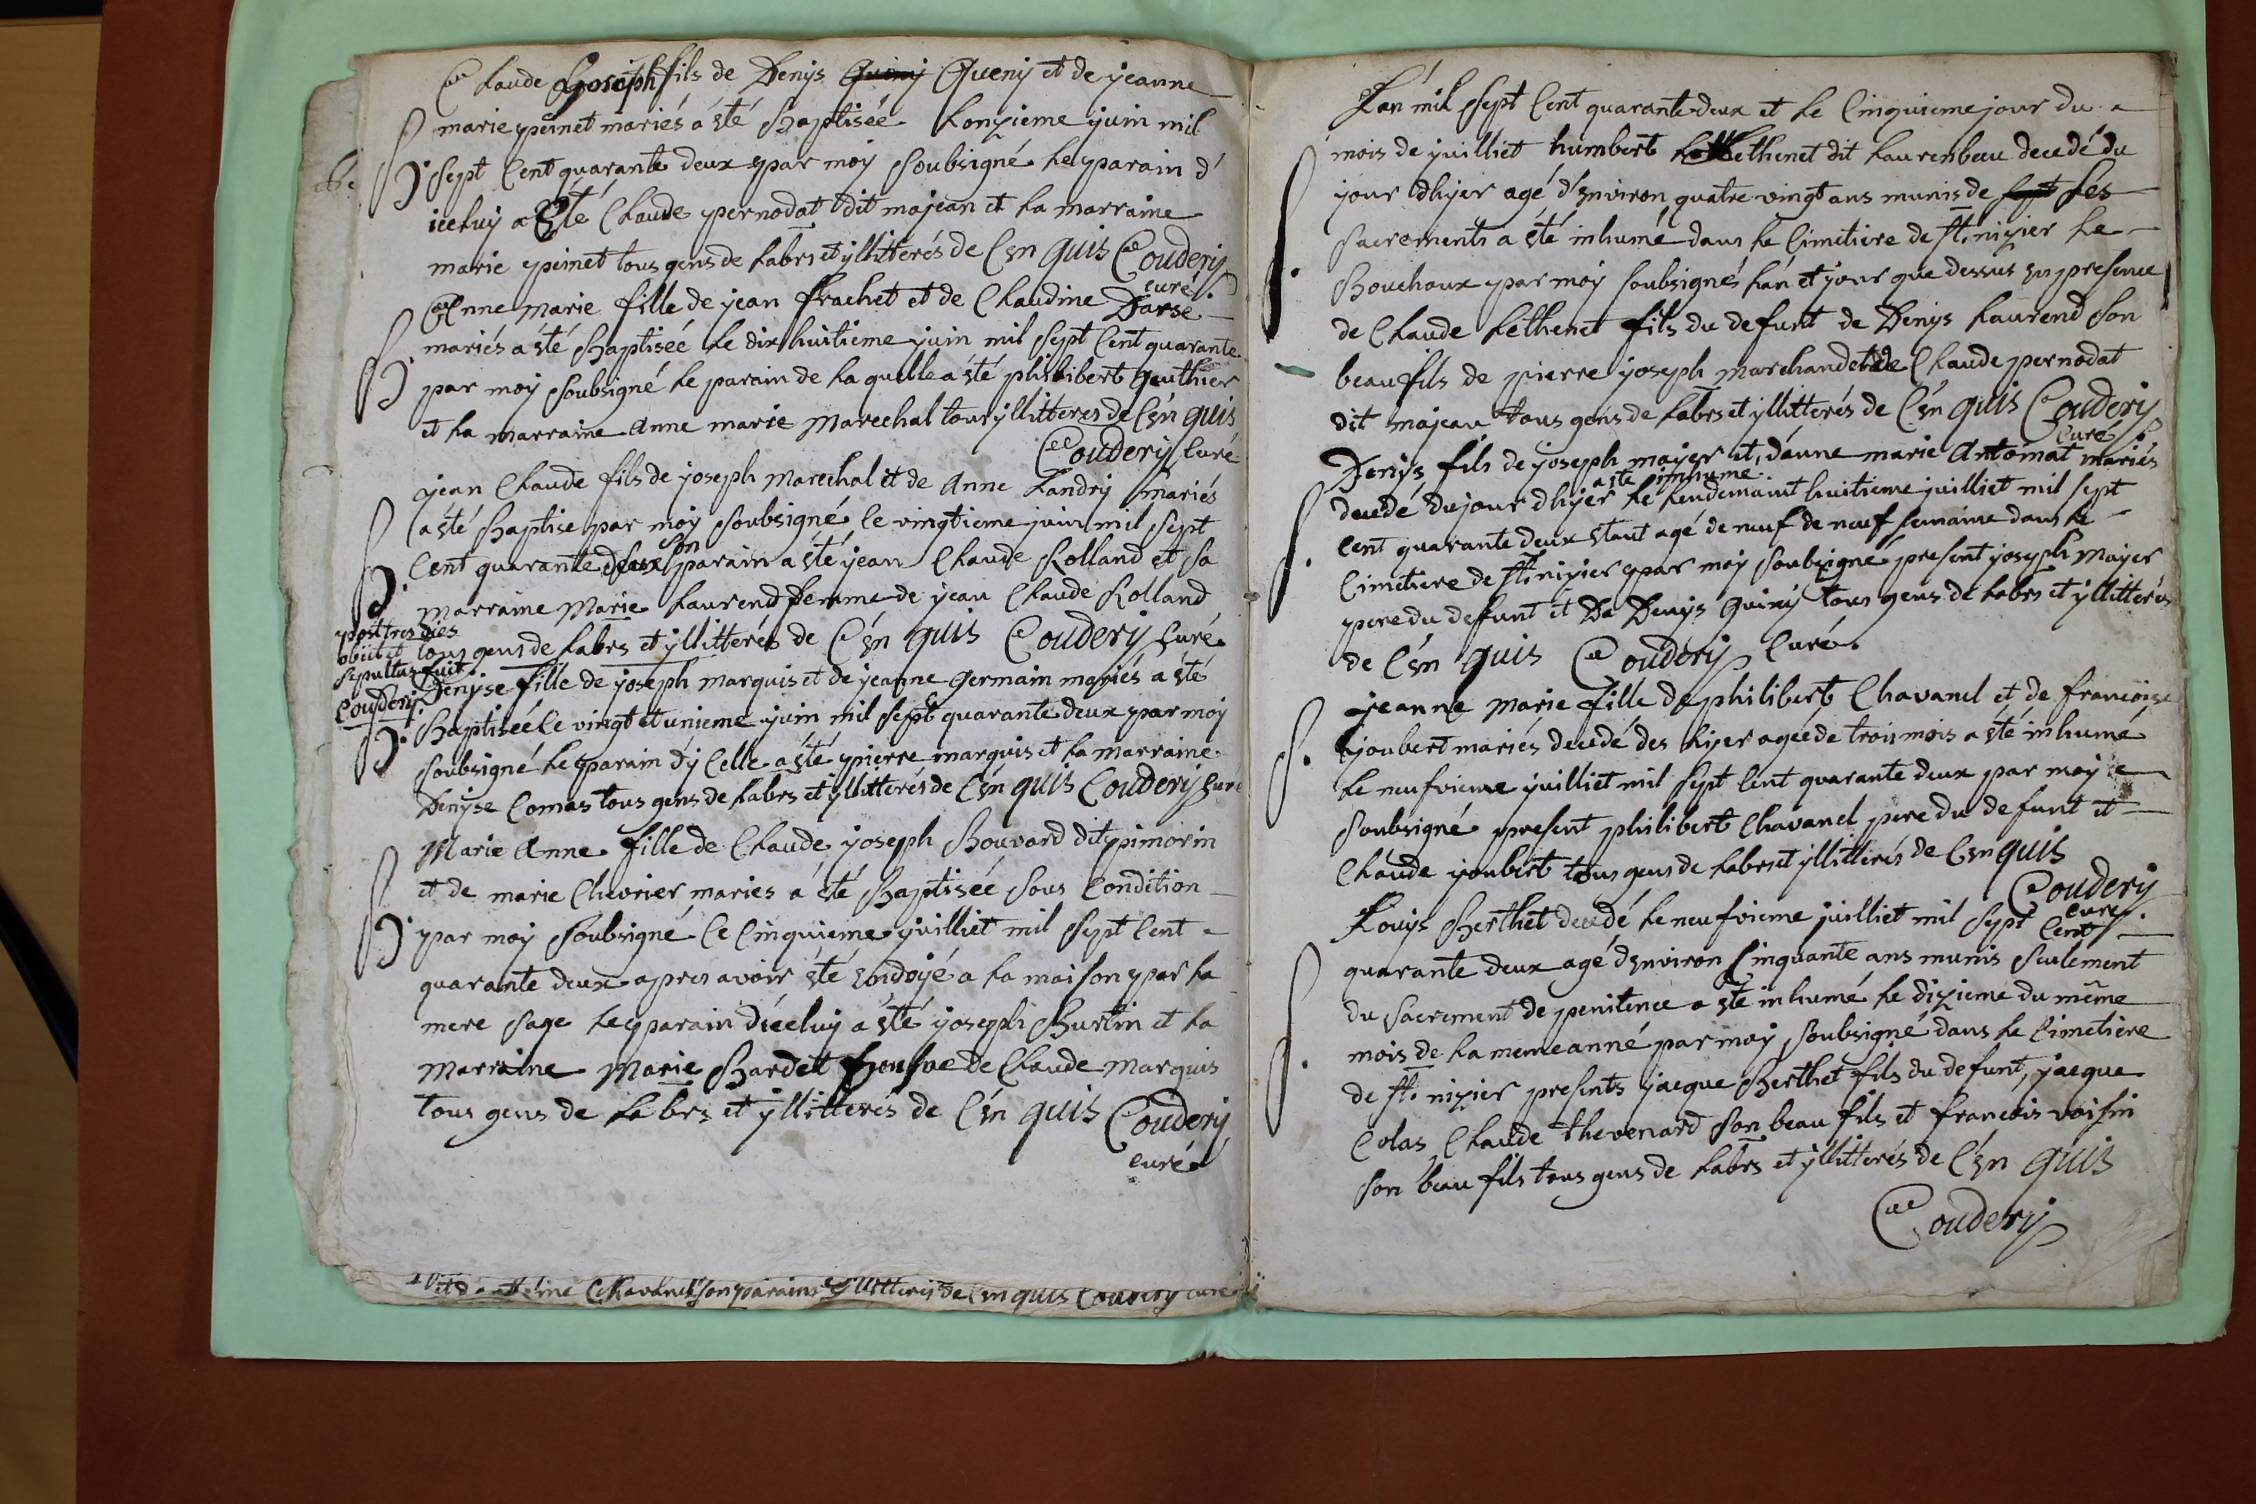 Claude Joseph fils de Denys Quiny Queny et de jeanne
marie perinet mariés a ésté Baptisée Lonzieme juin mil
B. sept Cent quarante deux par moy soubsigné Le parain d'
iceluy a Esté Claude pernodat dit majean et La marraine
marie peinet tous gens de Labrs et yllitterés de C'en quis Coudery
curé
Anne marie fille de jean frachet et de Claudine Darse
mariés a ésté Baptisée Le dix huitieme juin mil sept Cent quarante
B. par moy soubsigné Le parain de La quelle a ésté philibert Gauthier
et La marraine Anne marie Marechal tous yllitteres de C'én quis
Coudery Curé
jean Claude fils de joseph Marechal et de Anne Landry mariés
a ésté Baptise par moy soubsigné le vingtieme juin mil sept
B. Cent quarante deux son parain a ésté jean Claude Rolland et sa
marraine Marie Laurend femme de jean Claude Rolland
tous gens de Labrs et yllitterés de C'én quis Coudery Curé
post tres dies
obiit et
sepultus fuit
Coudery
Denyse fille de joseph marquis et de jeanne Germain mariés a ésté
B. Baptisée Le vingt et unieme juin mil sept quarante deux par moy
soubsigné Le parain d'y Celle a ésté pierre marquis et La marraine
Denyse Comas tous gens de Labrs et yllitterés de C'én quis Coudery Curé
Marie Anne fille de Claude joseph Bouvard dit pimorin
et de marie Chevrier maries a été Baptisée sous Condition
B. par moy soubsigné Le Cinquieme juilliet mil sept Cent
quarante deux apres avoir été ondoyé a La maison par La
mere sage Le parain d'iceluy a ésté joseph Burtin et La
marraine Marie Bardet de Claude marquis
tous gens de Labrs et yllitterés de C'én quis Coudery
curé
Chavanel son parains yllitterés de C'en quis Coudery curé
Lan mil sept Cent quarante deux et Le Cinquieme jour du
mois de juilliet humbert Lethenet dit Laurenbeau decedé du
jour dhyer agé d'Environ quatre vingt ans munis de sept ses
sacrements a été inhumé dans Le Cimetiere de st. nizier Le
S. Bouchoux par moy soubsignés L'an et jour que dessus en presence
de Claude Lethenet fils du defunt de Denys Laurend son
beau fils de pierre joseph marchandet de Claude pernodat
dit majeau tous gens de Labrs et yllitterés de C'én quis Coudery
Curé
Denys fils de joseph mayer et, d'anne marie Antomat mariés
a été inhumé
decedé du jour dhyer Le Lendemaint huitieme juilliet mil sept
S. cent quarante deux étant agé de neuf de neuf semaine dans Le
Cimetiere de st. nizier par moy soubsigné present joseph Mayer
pere du defunt et De Denys Quiny tous gens de Labrs et yllitterés
de C'én quis Coudery Curé.
jeanne marie fille de philibert Chavanel et de francoise
S. joubert mariés decedé des hijer ageé de trois mois a été inhumé
Le neufvieme juilliet mil sept Cent quarante deux par moy
soubsigné present philibert Chavanel pere du defunt et
Claude joubert tous gens de Labrs et yllitterés de C'en quis
Coudery
Curé
Louys Berthet decedé Le neufvieme juilliet mil sept Cent
quarante deux agé d'Environ Cinquante ans munis seulement
du sacrement de penitence a ésté inhumé Le dizieme du même
S. mois de La meme anné par moy soubsigné dans Le Cimetiere
de st. nizier presents jacque Berthet fils du defunt, jacque
Colas, Claude thevenard son beau fils et francois voisin
son beau fils tous gens de Labrs et yllitterés de C'én quis
Coudery